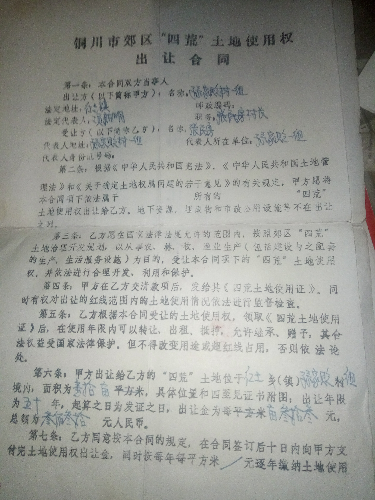 铜川市郊区“四荒”土地使用权
出让合同
第一条：本合同双方当事人
出让方（以下简称甲方）：名称： 村一组
法定地址： 邮政编码：
法定代表人： 职务：
受让方（以下简称乙方）：名称：
代表人地址： 村一组 代表人所在单位： 一组
代表人身份证号码：
第二条：根据《中华人民共和国宪法》、《中华人民共和国土地管
理法》和《关于确定土地权属问题的若干意见》的有关规定，甲方愿将
本合同项下依法属于 所有的 “四荒”
土地使用权出让给乙方，地下资源、 和市政公用设施等不在出让
之列。
第三条：乙方愿在国家法律法规允许的范围内，根据郊区“四荒”
土地治理开发规划，以从事农、林、牧、渔业生产（包括建设与之配套
的生产、生活服务设施）为目的，受让本合同项下的“四荒”土地使用
权，并依法进行合理开发、利用和保护。
第四条：甲方在乙方交清款项后，发给其《四荒土地使用证》。同
时有权对出让的红线范围内的土地使用情况依法进行监督检查。
第五条：乙方根据本合同受让的土地使用权，领取《四荒土地使用
证》后，在使用年限内可以转让、出租、抵押、允许继承、赠予，其合
法权益受国家法律保护。但不得改变用途或超红线占用，否则依法论
处。
第六条：甲方出让给乙方的“四荒”土地位于 乡（镇） 村 组
境内，面积为叁拾亩平方米，具体位置和四至见证书附图；出让年限
为五十年，起算之日为发证之日，出让金为每平方米 元，
总额为 元人民币。
第七条：乙方同意按本合同的规定，在合同签订后十日内向甲方支
付完土地使用权出让金，同时按每年每平方米 / 元逐年缴纳土地使用